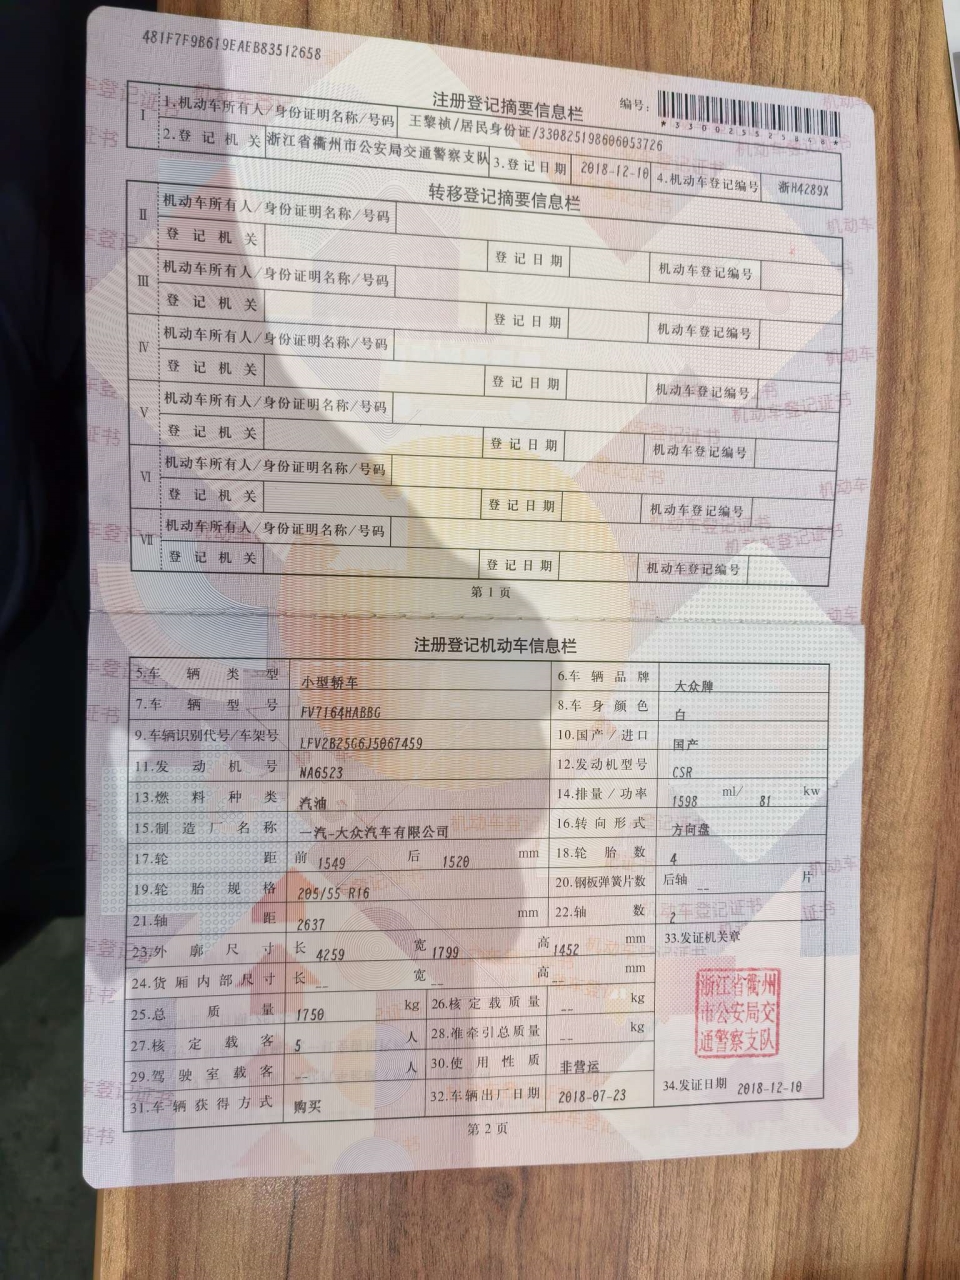 481F7F9B619EAEB83512658
注册登记摘要信息栏
编号:
*330023523848*
I
1.机动车所有人/身份证明名称/号码 王黎祯/居民身份证/330825198606053726
2.登记机关 浙江省衢州市公安局交通警察支队 3.登记日期 2018-12-10 4.机动车登记编号 浙H4289X
转移登记摘要信息栏
II
机动车所有人/身份证明名称/号码
登记机关 登记日期 机动车登记编号
III
机动车所有人/身份证明名称/号码
登记机关 登记日期 机动车登记编号
IV
机动车所有人/身份证明名称/号码
登记机关 登记日期 机动车登记编号
V
机动车所有人/身份证明名称/号码
登记机关 登记日期 机动车登记编号
VI
机动车所有人/身份证明名称/号码
登记机关 登记日期 机动车登记编号
VII
机动车所有人/身份证明名称/号码
登记机关 登记日期 机动车登记编号
第1页
注册登记机动车信息栏
5.车辆类型 小型轿车 6.车辆品牌 大众牌
7.车辆型号 FV7164HABBG 8.车身颜色 白
9.车辆识别代号/车架号 LFV2B25G6J5067459 10.国产/进口 国产
11.发动机号 NA6523 12.发动机型号 CSR
13.燃料种类 汽油 14.排量/功率 1598 ml/ 81 kw
15.制造厂名称 一汽-大众汽车有限公司 16.转向形式 方向盘
17.轮距 前 1549 后 1520 mm 18.轮胎数 4
19.轮胎规格 205/55 R16 20.钢板弹簧片数 后轴 -- 片
21.轴距 2637 mm 22.轴数 2
23.外廓尺寸 长 4259 宽 1799 高 1452 mm 33.发证机关章
24.货厢内部尺寸 长 -- 宽 -- 高 -- mm
25.总质量 1750 kg 26.核定载质量 -- kg
27.核定载客 5 人 28.准牵引总质量 -- kg
浙江省衢州
市公安局交
通警察支队
29.驾驶室载客 -- 人 30.使用性质 非营运
31.车辆获得方式 购买 32.车辆出厂日期 2018-07-23 34.发证日期 2018-12-10
第2页